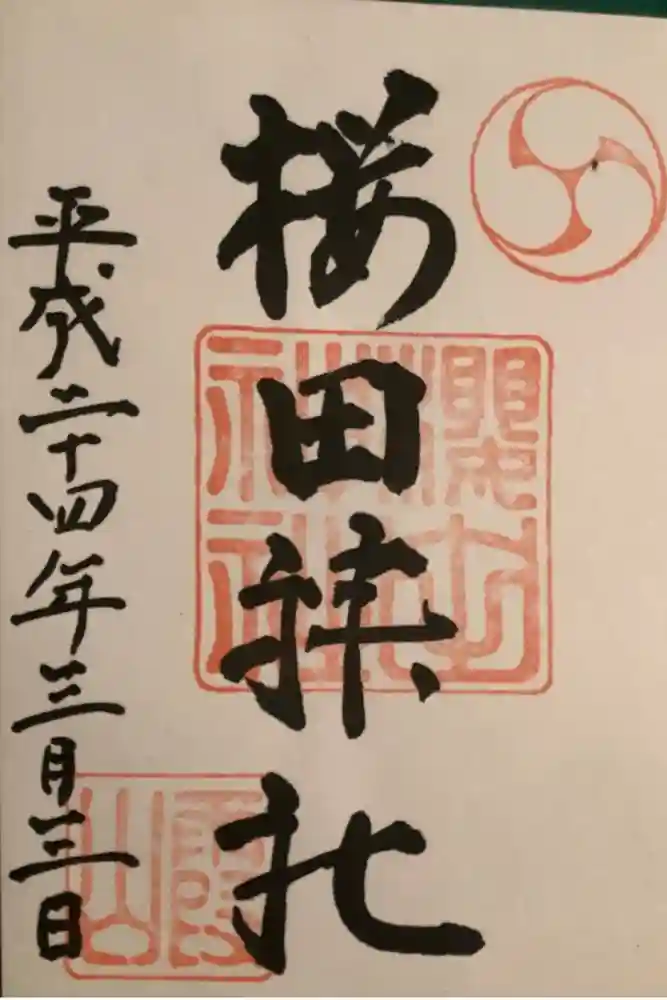 桜田神社
平成二十四年三月三日
霞山